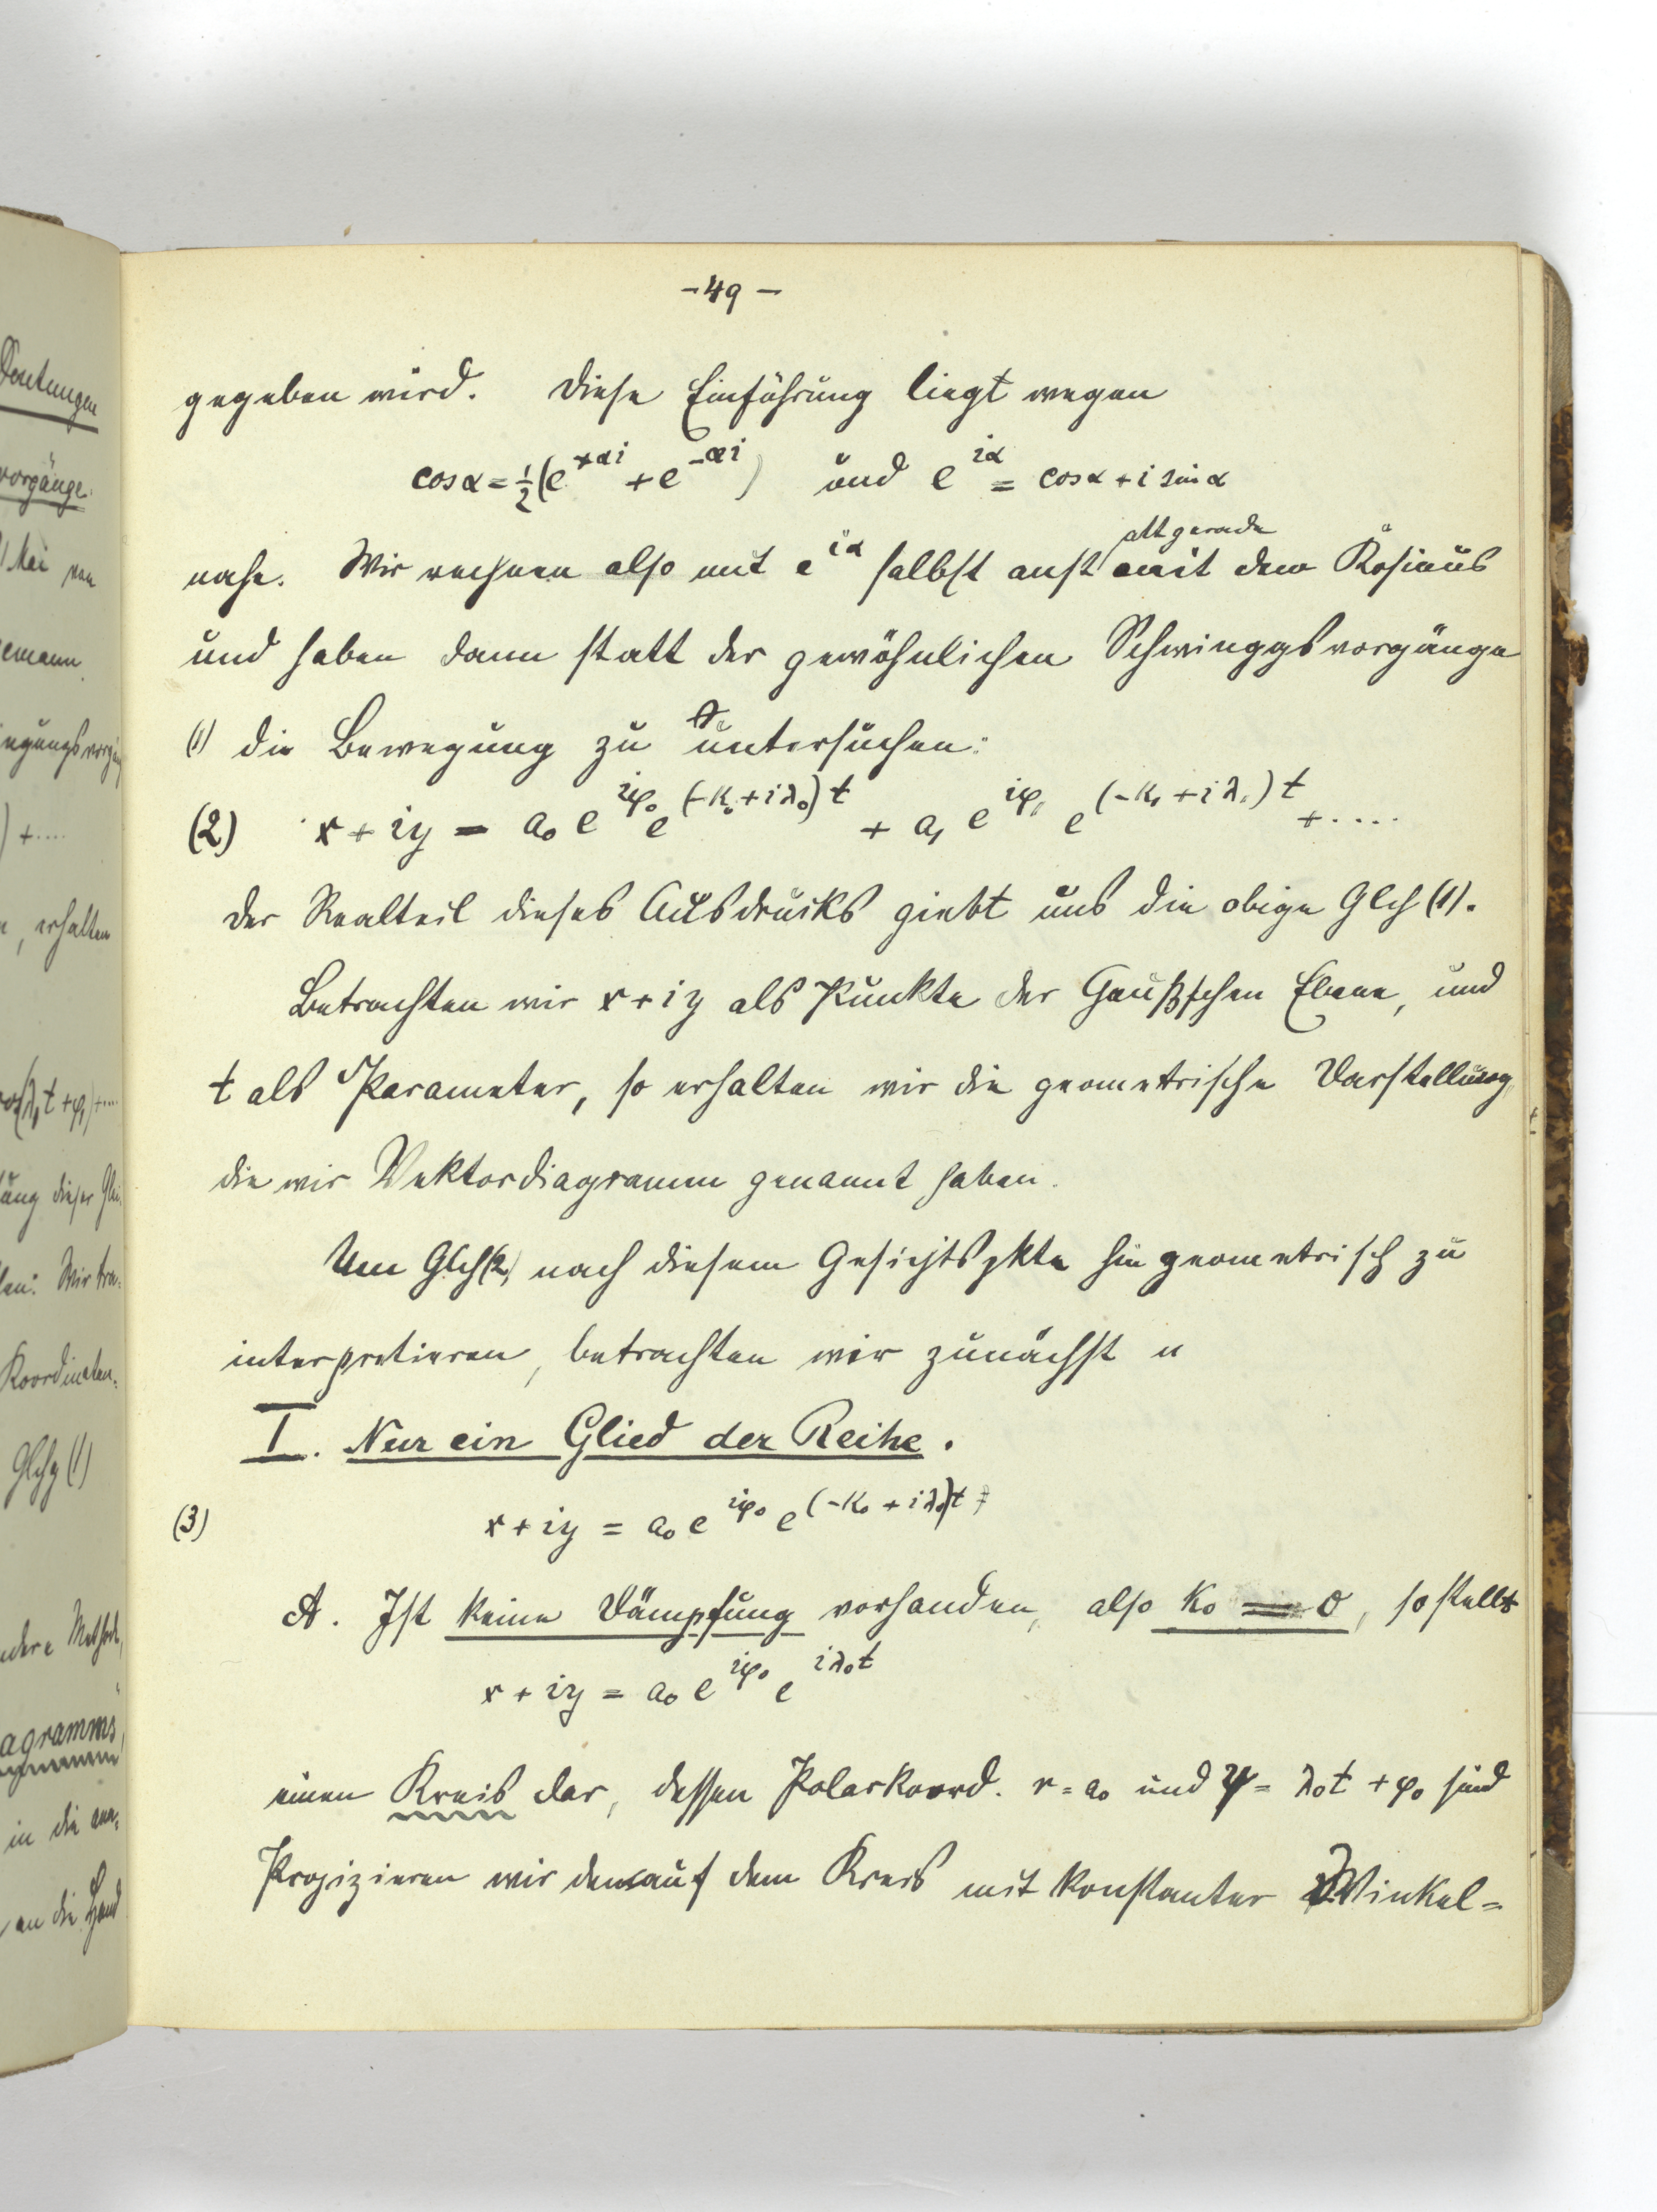 Deutungen
vorgänge.
Mai von
emann.
) + ....
, erhalten
t + φ₁) + ...
ung dieser Gl
en: Wir tra-
Koordinaten-
Glchg (1)
ndere Methode,
agramms,
in die
an die Hand
- 49 -
gegeben wird. Diese Einführung liegt wegen
cos α = ½ (e^{+αi} + e^{-αi}) und e^{iα} = cos α + i sin α
att gerade
nahe. Wir rechnen also mit e^{iα} selbst anst mit dem Kosinus
und haben dann statt der gewöhnlichen Schwinggsvorgänge
(1) die Bewegung zu untersuchen:
(2) x + iy = a₀ e^{iφ₀} e^{(-k₀ + iλ₀)t} + a₁ e^{iφ₁} e^{(-k₁ + iλ₁)t} + .....
Der Realteil dieses Ausdrucks giebt uns die obige Glch (1).
Betrachten wir x + iy als Punkte der Gaußschen Ebene, und
t als Parameter, so erhalten wir die geometrische Darstellung,
die wir Vektordiagramm genannt haben.
Um Glch (2) nach diesem Gesichtspkte hin geometrisch zu
interpretieren, betrachten wir zunächst
I. Nur ein Glied der Reihe.
(3) x + iy = a₀ e^{iφ₀} e^{(-k₀ + iλ₀)t}
A. Ist keine Dämpfung vorhanden, also k₀ = 0, so stellt
x + iy = a₀ e^{iφ₀} e^{iλ₀t}
einen Kreis dar, dessen Polarkoord. r = a₀ und ψ = λ₀t + φ₀ sind
Projizieren wir den auf dem Kreis mit konstanter Winkel-